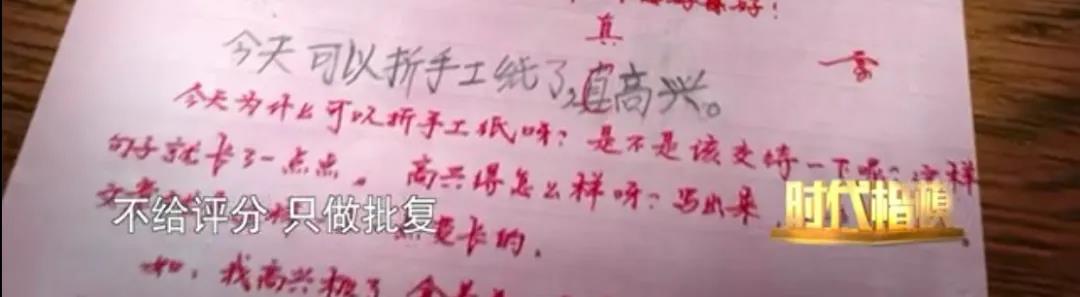 好！
真
今天可以折手工纸了，直高兴。
今天为什么可以折手工纸呀？是不是该交待一下呢？这样
句子就长了一点点。高兴得怎么样呀？写出来
时代楷模
不给评分 只做批复
长的。
如，我高兴极了